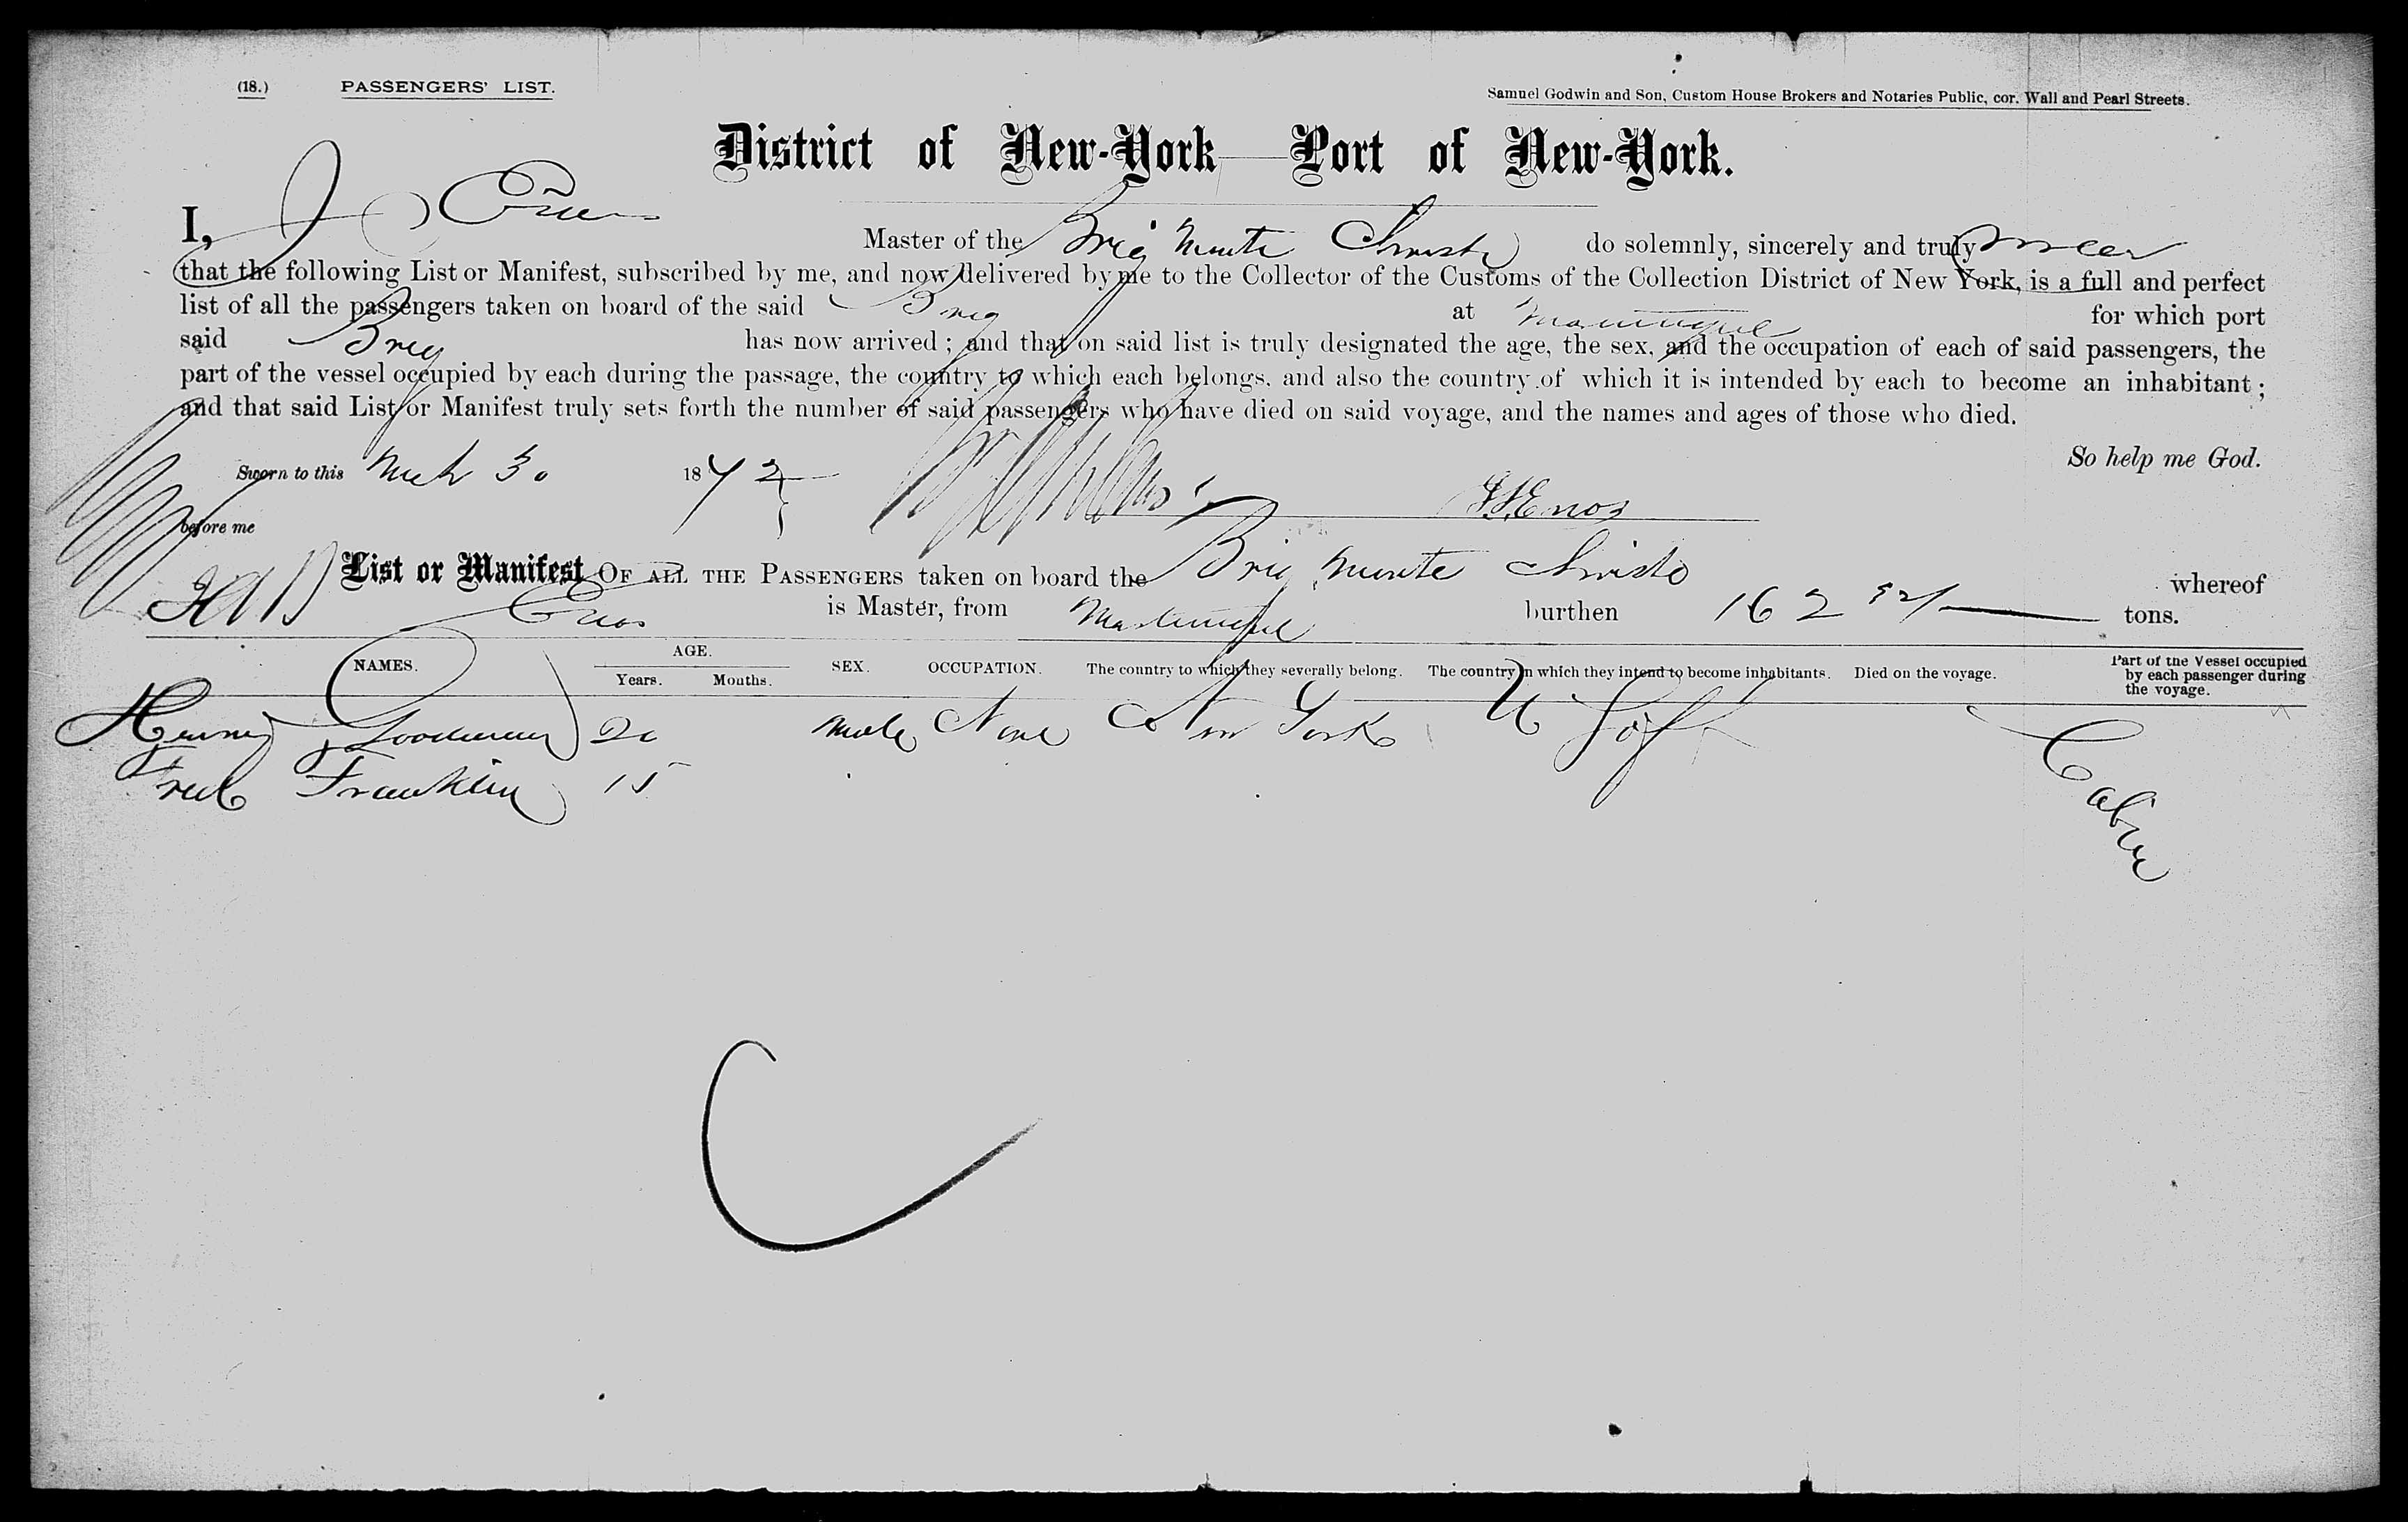 (18.) PASSENGERS' LIST.
Samuel Godwin and Son, Custom House Brokers and Notaries Public, cor. Wall and Pearl Streets.
District of New-York—Port of New-York.
I, J Enos Master of the Brig Monte Christo do solemnly, sincerely and truly swear
that the following List or Manifest, subscribed by me, and now delivered by me to the Collector of the Customs of the Collection District of New York, is a full and perfect
list of all the passengers taken on board of the said Brig at Martinique for which port
said Brig has now arrived; and that on said list is truly designated the age, the sex, and the occupation of each of said passengers, the
part of the vessel occupied by each during the passage, the country to which each belongs, and also the country of which it is intended by each to become an inhabitant;
and that said List or Manifest truly sets forth the number of said passengers who have died on said voyage, and the names and ages of those who died.
So help me God.
Sworn to this Mch 30 1872
before me J.S. Enos
List or Manifest OF ALL THE PASSENGERS taken on board the Brig Monte Christo whereof
Enos is Master, from Martinique burthen 162 tons.
NAMES. AGE. Years. Months. SEX. OCCUPATION. The country to which they severally belong. The country in which they intend to become inhabitants. Died on the voyage. Part of the Vessel occupied by each passenger during the voyage.
Henry 20 Male None New York U S of A Cabin
Fred Franklin 15